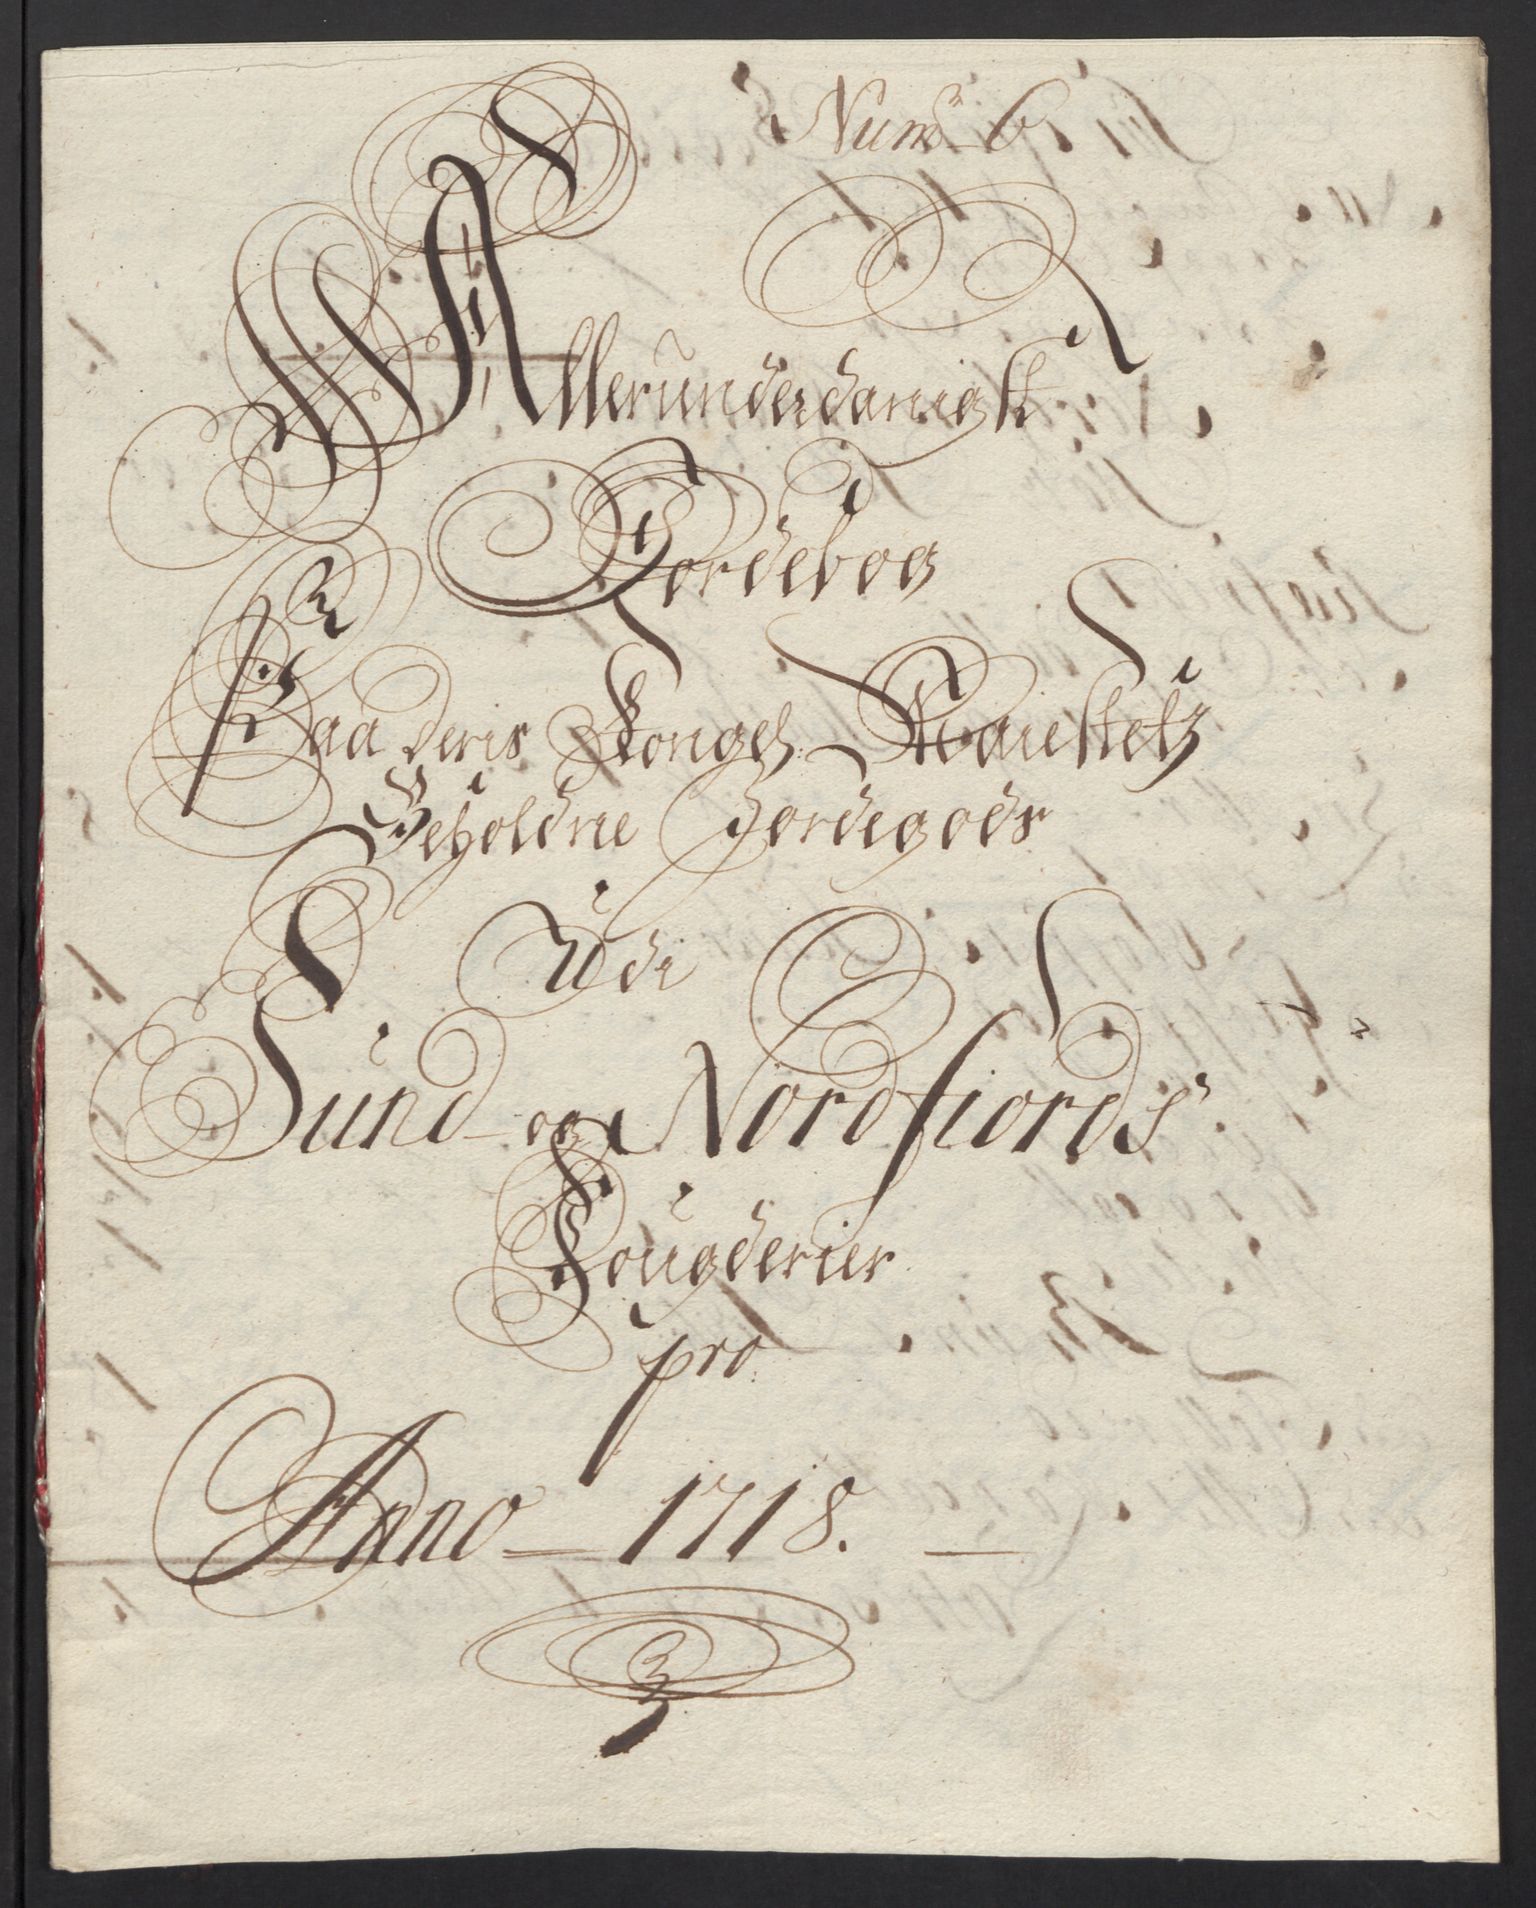 Num̄ 6
Allerunderdanigst
Jordebog
Paa deris Kongel: Maiestetz
Beholdne Jordegods
Udi
Sund- og Nordfiords
Fougderier
pro
Anno - 1718.